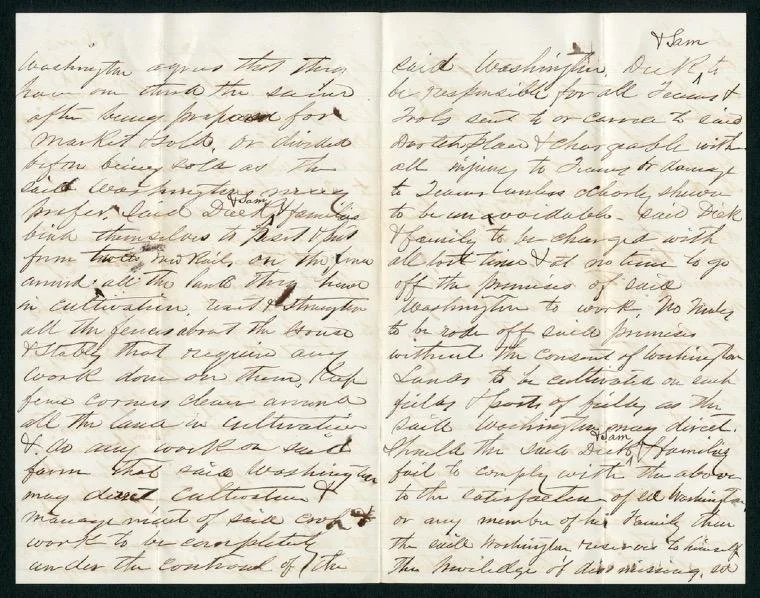 Washington agrees that they
have one third the same
after being prepared for
market & sold, or divided
before being sold as the
said Washington may
prefer. Said Dick & Sam & families
bind themselves to reset & put
from new rails on the fence
around all the land they have
in cultivation, reset & straighten
all the fences about the House
& Stable that require any
work done on them, Keep
fence corners clean around
all the land in cultivation
& do any work on said
farm that said Washington
may direct Cultivation &
management of said crop &
work to be completely
under the control of the
& Sam
said Washington, Dick, to
be responsible for all Teams &
Tools sent to or carried to said
place & chargeable with
all injury to Teams or damage
to Teams unless clearly shown
to be unavoidable - said Dick
& family to be charged with
all lost time & at no time to go
off the premises of said
Washington to work. No Mules
to be rode off said premises
without the consent of Washington
Lands to be cultivated on such
fields & parts of fields as the
said Washington may direct.
Should the said Dick & Sam & families
fail to comply with the above
to the satisfaction of sd Washington
or any member of his Family then
the said Washington reserves to himself
the priviledge of dismissing sd